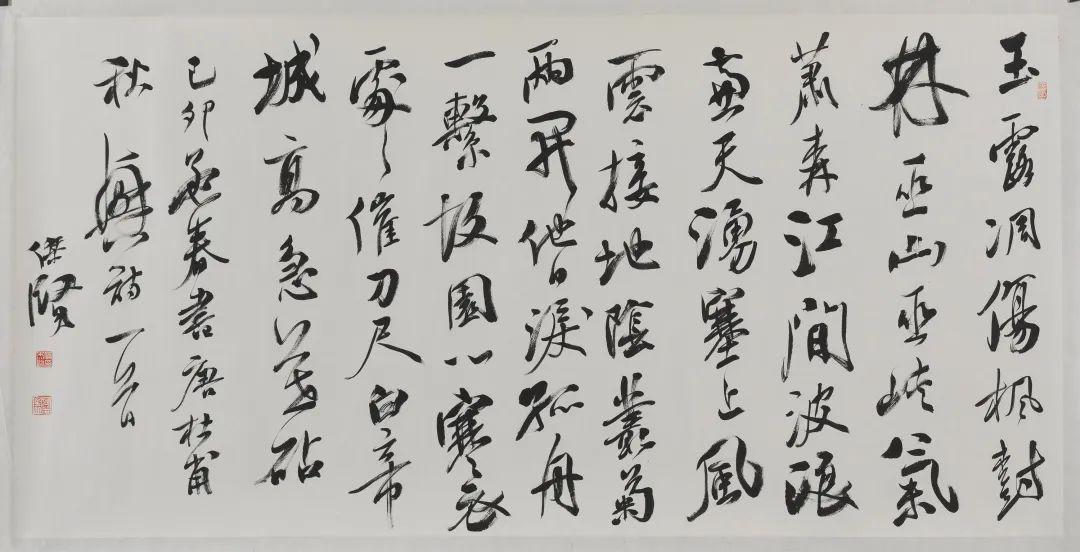 玉露凋傷楓樹
林巫山巫峽氣
蕭森江間波浪
兼天湧塞上風
雲接地陰叢菊
兩開他日淚孤舟
一繫故園心寒衣
處々催刀尺白帝
城高急暮砧
己卯孟春書唐杜甫
秋興詩一首
賢